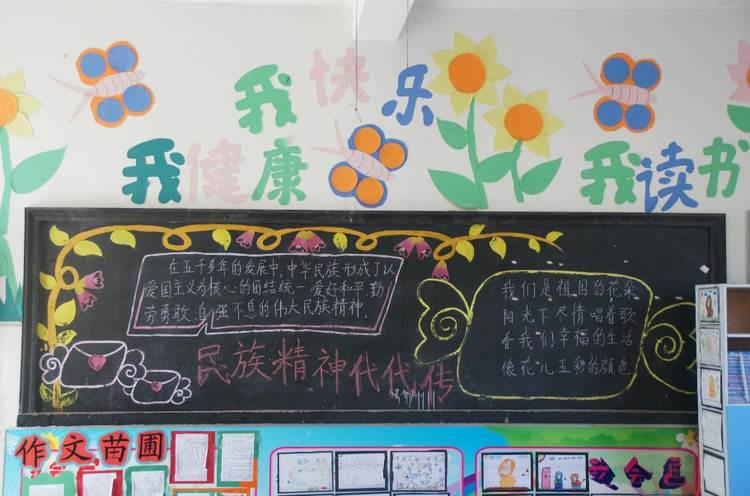 我快乐
我健康
我读书
在五千多年的发展中,中华民族形成了以
爱国主义为核心的团结统一、爱好和平、勤
劳勇敢、自强不息的伟大民族精神.
民族精神代代传
我们是祖国的花朵
阳光下尽情唱着歌
看我们幸福的生活
像花儿五彩的颜色
作文苗圃
我会画